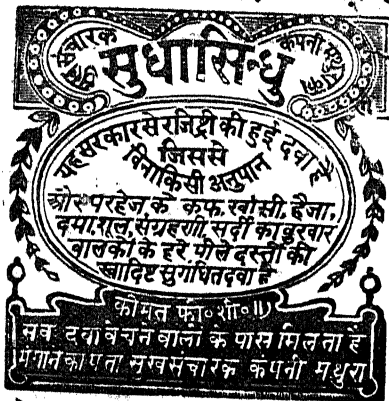 सुख संचारक कंपनी मथुरा का
सुधासिन्धु
यह सरकार से रजिट्री की हुई दवा है
जिससे
बिना किसी अनुपान
और परहेज के कफ, खांसी, हैजा,
दमा, शूल, संग्रहणी, सर्दी का बुखार
बालकों के हरे पीले दस्तों की
स्वादिष्ट सुगंधित दवा है
कीमत फी॰ शी॰ ॥)
सब दवा बेचने वालों के पास मिलता है
मंगाने का पता सुख संचारक कंपनी मथुरा